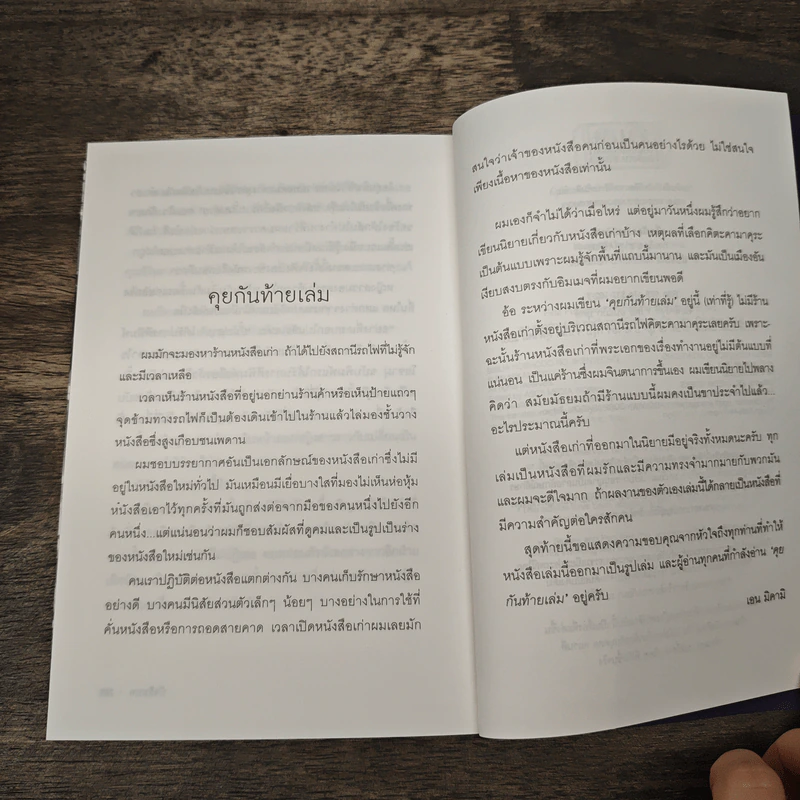 คุยกันท้ายเล่ม
ผมมักจะมองหาร้านหนังสือเก่า ถ้าได้ไปยังสถานีรถไฟที่ไม่รู้จัก
และมีเวลาเหลือ
เวลาเห็นร้านหนังสือที่อยู่นอกย่านร้านค้าหรือเห็นป้ายแถวๆ
จุดข้ามทางรถไฟก็เป็นต้องเดินเข้าไปในร้านแล้วไล่มองชั้นวาง
หนังสือซึ่งสูงเกือบชนเพดาน
ผมชอบบรรยากาศอันเป็นเอกลักษณ์ของหนังสือเก่าซึ่งไม่มี
อยู่ในหนังสือใหม่ทั่วไป มันเหมือนมีเยื่อบางใสที่มองไม่เห็นห่อหุ้ม
หนังสือเอาไว้ทุกครั้งที่มันถูกส่งต่อจากมือของคนหนึ่งไปยังอีก
คนหนึ่ง...แต่แน่นอนว่าผมก็ชอบสัมผัสที่ดูคมและเป็นรูปเป็นร่าง
ของหนังสือใหม่เช่นกัน
คนเราปฏิบัติต่อหนังสือแตกต่างกัน บางคนเก็บรักษาหนังสือ
อย่างดี บางคนมีนิสัยส่วนตัวเล็กๆ น้อยๆ บางอย่างในการใช้ที่
คั่นหนังสือหรือการถอดสายคาด เวลาเปิดหนังสือเก่าผมเลยมัก
สนใจว่าเจ้าของหนังสือคนก่อนเป็นคนอย่างไรด้วย ไม่ใช่สนใจ
เพียงเนื้อหาของหนังสือเท่านั้น
ผมเองก็จำไม่ได้ว่าเมื่อไหร่ แต่อยู่มาวันหนึ่งผมรู้สึกว่าอยาก
เขียนนิยายเกี่ยวกับหนังสือเก่าบ้าง เหตุผลที่เลือกคิตะคามาคุระ
เป็นต้นแบบเพราะผมรู้จักพื้นที่แถบนี้มานาน และมันเป็นเมืองอัน
เงียบสงบตรงกับอิมเมจที่ผมอยากเขียนพอดี
อ้อ ระหว่างผมเขียน ‘คุยกันท้ายเล่ม’ อยู่นี้ (เท่าที่รู้) ไม่มีร้าน
หนังสือเก่าตั้งอยู่บริเวณสถานีรถไฟคิตะคามาคุระเลยครับ เพราะ-
ฉะนั้นร้านหนังสือเก่าที่พระเอกของเรื่องทำงานอยู่ไม่มีต้นแบบที่
แน่นอน เป็นแค่ร้านซึ่งผมจินตนาการขึ้นเอง ผมเขียนนิยายไปพลาง
คิดว่า สมัยมัธยมถ้ามีร้านแบบนี้ผมคงเป็นขาประจำไปแล้ว...
อะไรประมาณนี้ครับ
แต่หนังสือเก่าที่ออกมาในนิยายมีอยู่จริงทั้งหมดนะครับ ทุก
เล่มเป็นหนังสือที่ผมรักและมีความทรงจำมากมายกับพวกมัน
และผมจะดีใจมาก ถ้าผลงานของตัวเองเล่มนี้ได้กลายเป็นหนังสือที่
มีความสำคัญต่อใครสักคน
สุดท้ายนี้ขอแสดงความขอบคุณจากหัวใจถึงทุกท่านที่ทำให้
หนังสือเล่มนี้ออกมาเป็นรูปเล่ม และผู้อ่านทุกคนที่กำลังอ่าน ‘คุย
กันท้ายเล่ม’ อยู่ครับ
เอน มิคามิ